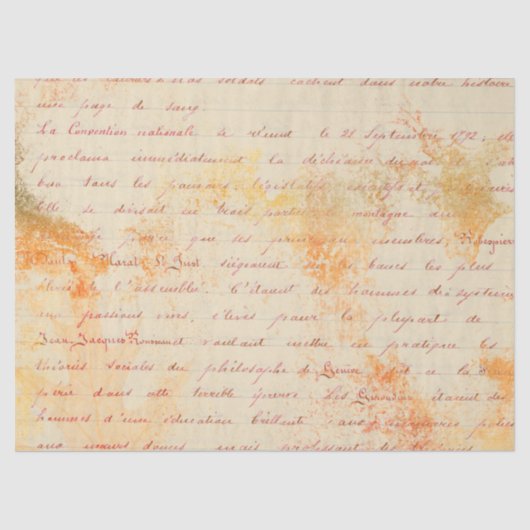 soldats cachent dans notre histoire
une page de sang.
La Convention nationale se réunit le 21 Septembre 1792, elle
proclama immédiatement la déchéance du roi et
tous les pouvoirs; législatif,
Elle se divisait en trois montagne
parce que ses principaux membres, Robespierre
Danton Marat St Just siégeaient sur les bancs les plus
élevés de l'assemblée. C'étaient des hommes
passions vives, élevés pour la plupart de
Jean-Jacques Rousseau et voulant mettre en pratique les
théories sociales du philosophe de Genève
dans cette terrible épreuve. Les Girondins étaient des
hommes d'une éducation brillante aux manières polies
aux mœurs douces mais professant des